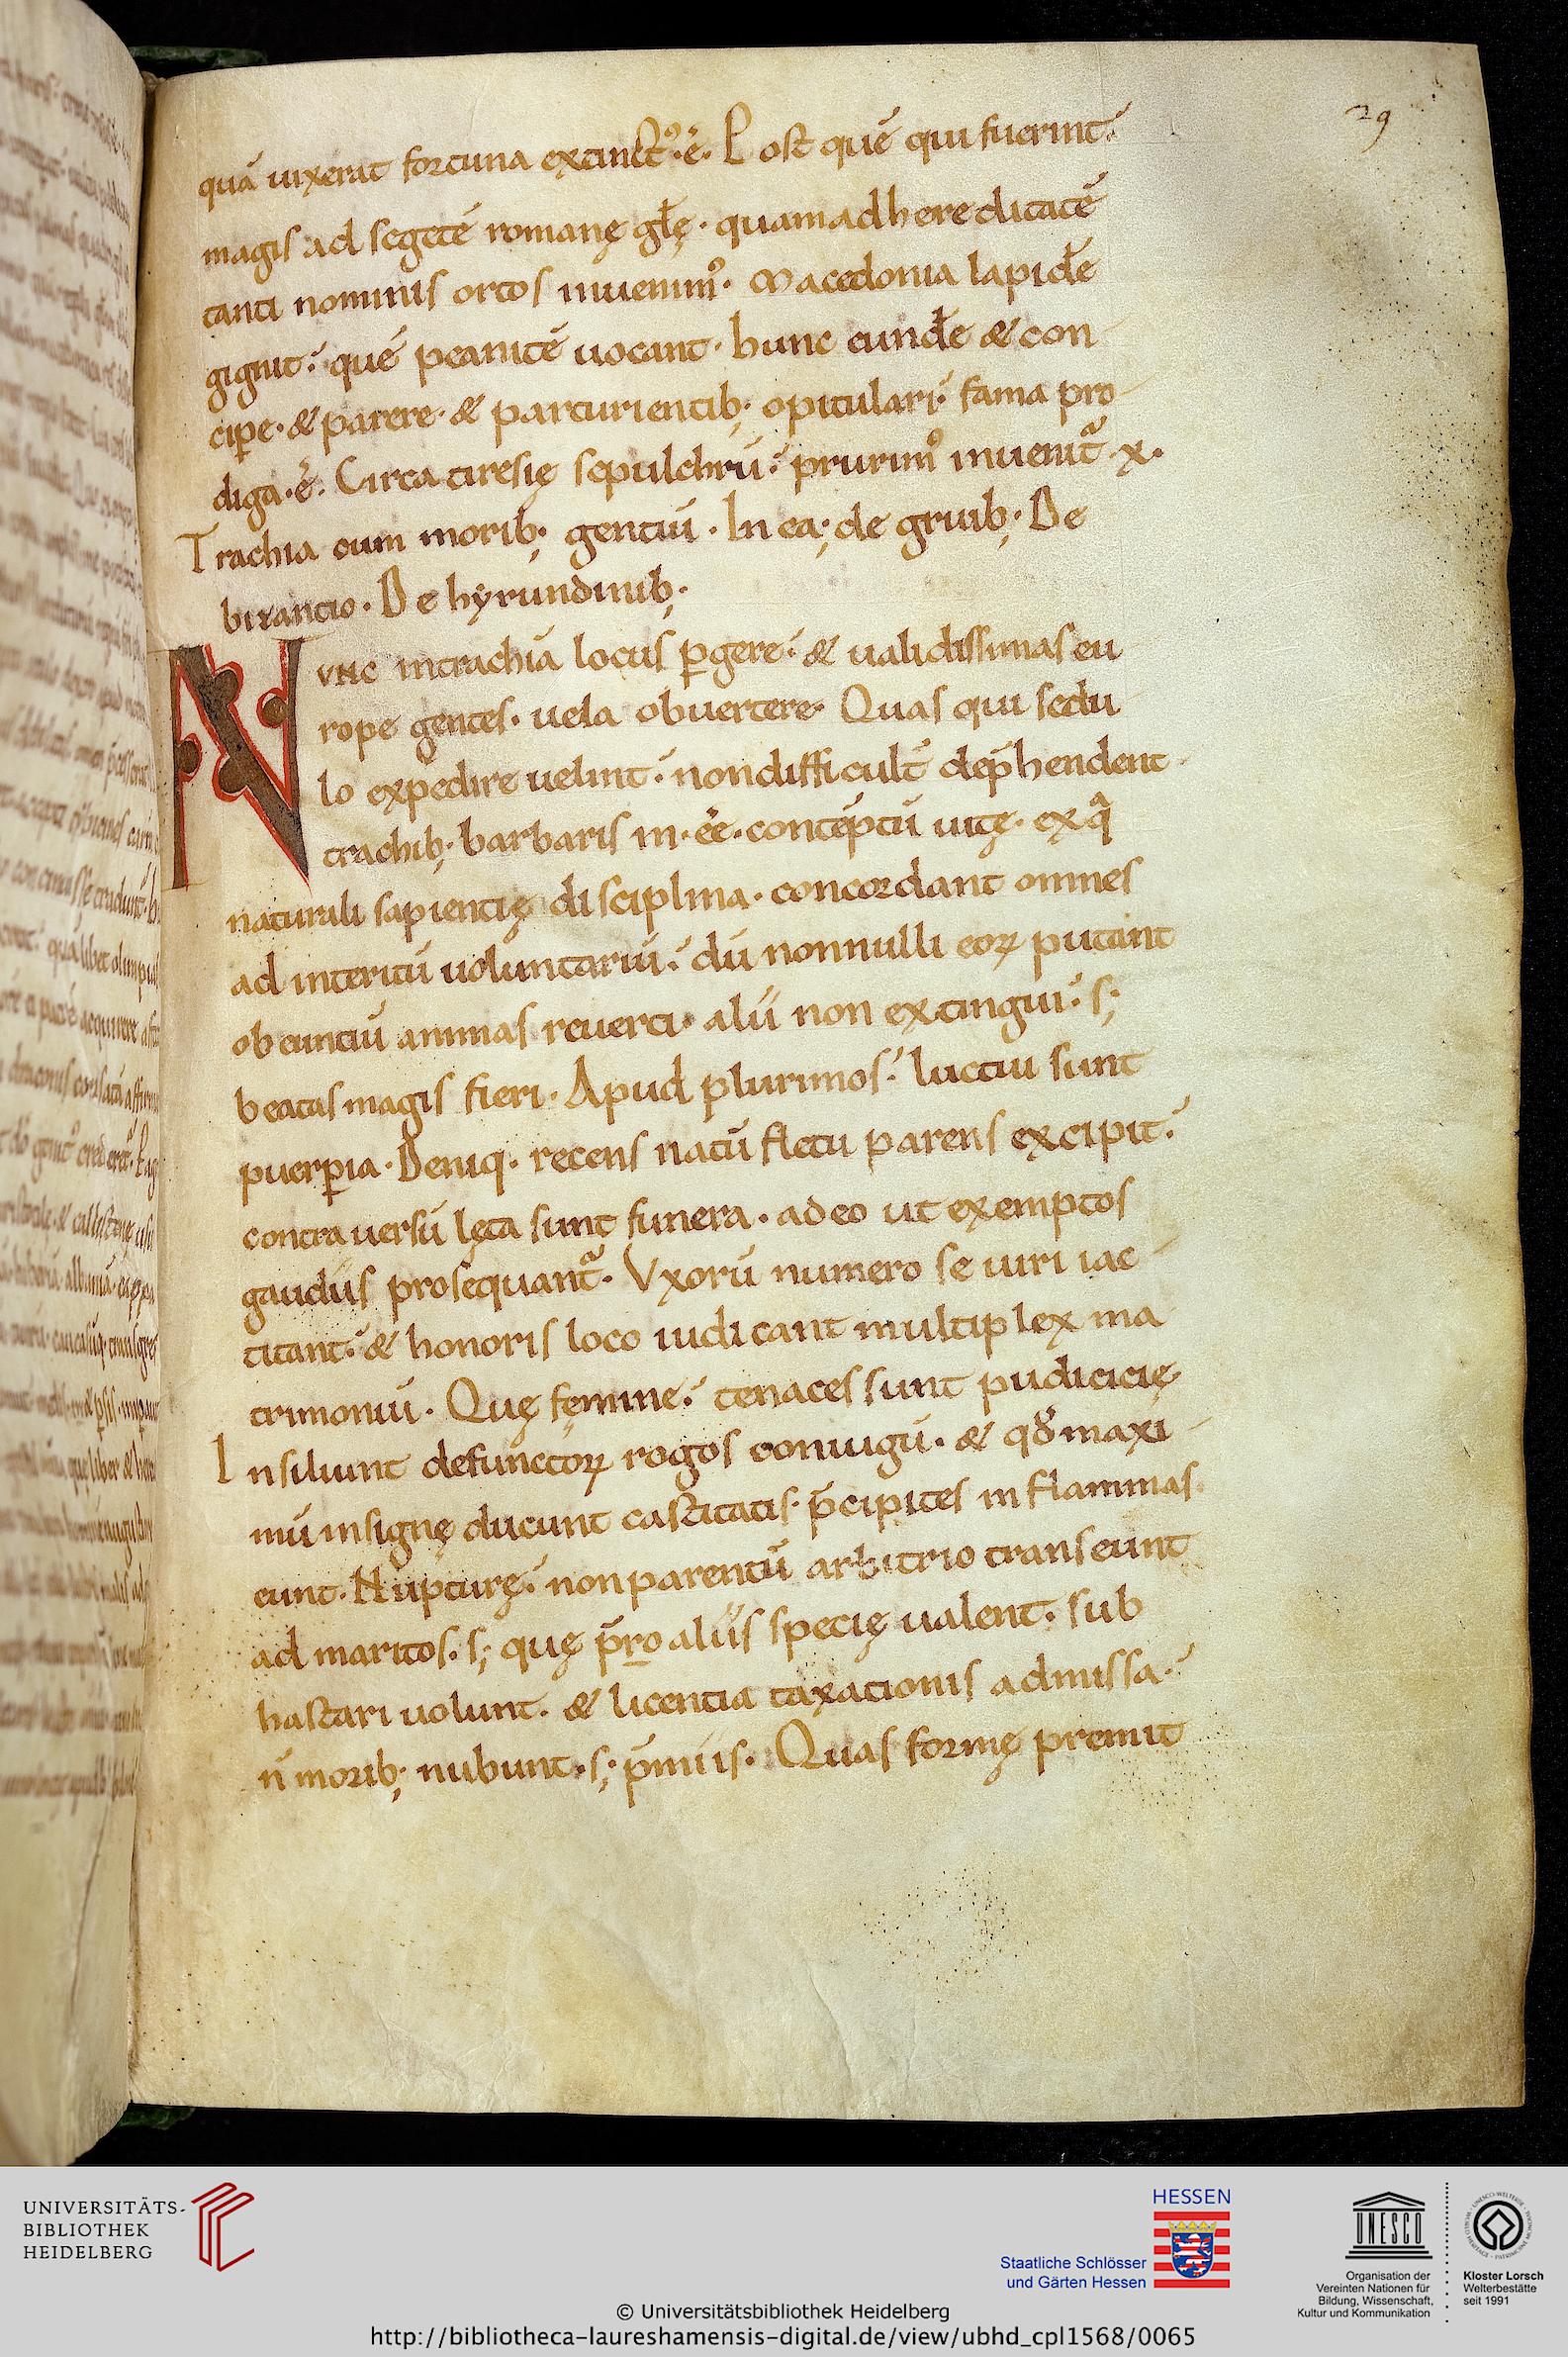 29
quā uixerat fortuna extinctꝰ·ē· Post quē qui fuerint·
magis ad segetē romanę głę· quam ad hereditatē
tanti nominis ortos inuenimꝰ· Macedonia lapidē
gignit· quē peanitē uocant· hunc eundē & con
cipe·& parere·& parturientib; opitulari· fama pro
diga·ē· Circa tiresię sepulchrū· prurimꝰ inuenit᷑ x·
Trachia cum morib; gentiū· In ea; de gruib; De
bizantio· De hyrundinib;
NVNC in trachiā locus ꝑgere· & ualidissimas eu
rope gentes· uela obuertere· Quas qui sedu
lo expedire uelint· non difficult̄ dep̄hendent
trachib; barbaris in·eē·contēptū uitę· ex qͣ
naturali sapientię disciplina· concordant omnes
ad interitū uoluntariū· dū nonnulli eoꝝ putant
obeuntiū animas reuerti· alii non extingui· s;
beatas magis fieri· Apud plurimos· luctiu sunt
puerꝑia· Deniq· recens natū fletu parens excipit·
contra uersū lęta sunt funera· adeo ut exemptos
gaudiis prosequant᷑· Vxorū numero se uiri iac
titant· & honoris loco iudicant multiplex ma
trimoniū· Quę femine· tenaces sunt pudicicię
Insiliunt defunctoꝝ rogos coniugū· & qđ maxi
mū insignę ducunt castitatis· p̄cipites in flammas
eunt· Nupturę· non parentū arbitrio transeunt
ad maritos· s; quę p̄ro aliis specię ualent· sub
hastari uolunt· & licentia taxationis admissa·
n̄ morib; nubunt· s; p̄miis· Quas formę premit
UNIVERSITÄTS-
BIBLIOTHEK
HEIDELBERG
HESSEN
Staatliche Schlösser
und Gärten Hessen
UNESCO
Organisation der
Vereinten Nationen für
Bildung, Wissenschaft,
Kultur und Kommunikation
Kloster Lorsch
Welterbestätte
seit 1991
© Universitätsbibliothek Heidelberg
http://bibliotheca-laureshamensis-digital.de/view/ubhd_cpl1568/0065